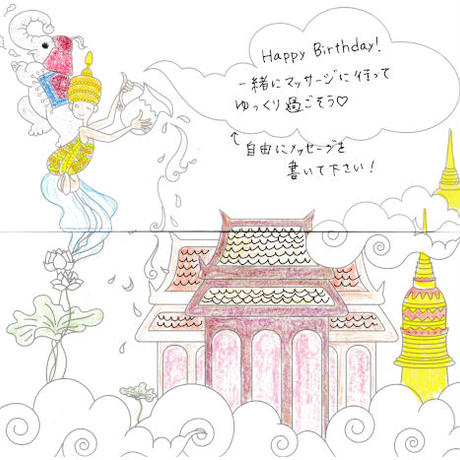 Happy Birthday!
一緒にマッサージに行って
ゆっくり過ごそう♡
↑自由にメッセージを
書いて下さい！